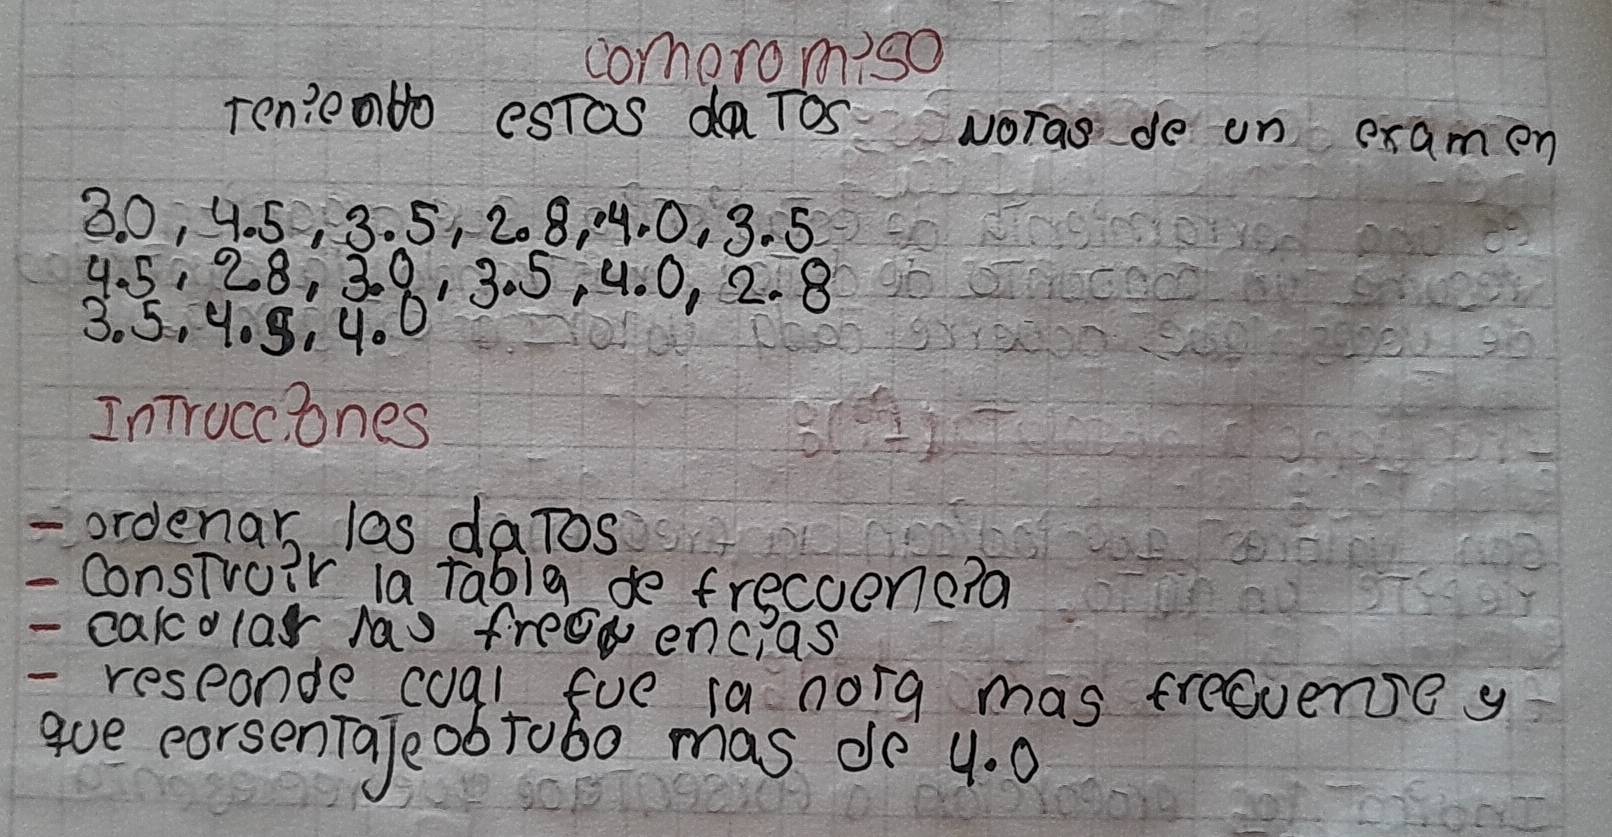 compromiso
Teniendo estos datos Notas de un examen
3.0, 4.5, 3.5, 2.8, 4.0, 3.5
4.5, 2.8, 3.0, 3.5, 4.0, 2.8
3.5, 4.5, 4.0
Intrucciones
- ordenar los datos
- construir la tabla de frecuencia
- calcular las frecuencias
- responde cual fue la nota mas frecuente y
que porsentaje obtubo mas de 4.0